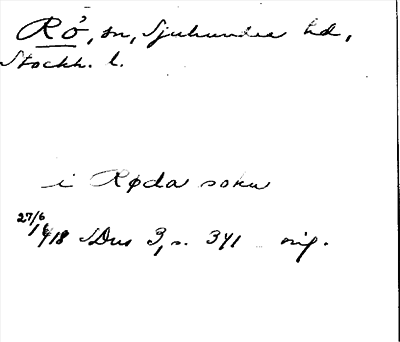 Rö, sn, Sjuhundra hd,
Stockh. l.
i Røda sokn
27/6 1418 SDns 3, s. 341 orig.